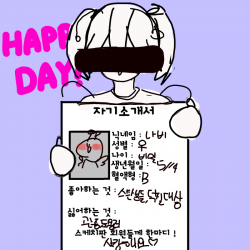 HAPPY
DAY!
자기소개서
닉네임 : 나비
성별 : 우
나이 : 비밀
생년월일 : 5/14
혈액형 : B
좋아하는 것 :
싫어하는 것 :
스케치판 회원들께 한마디!
사랑해요♡